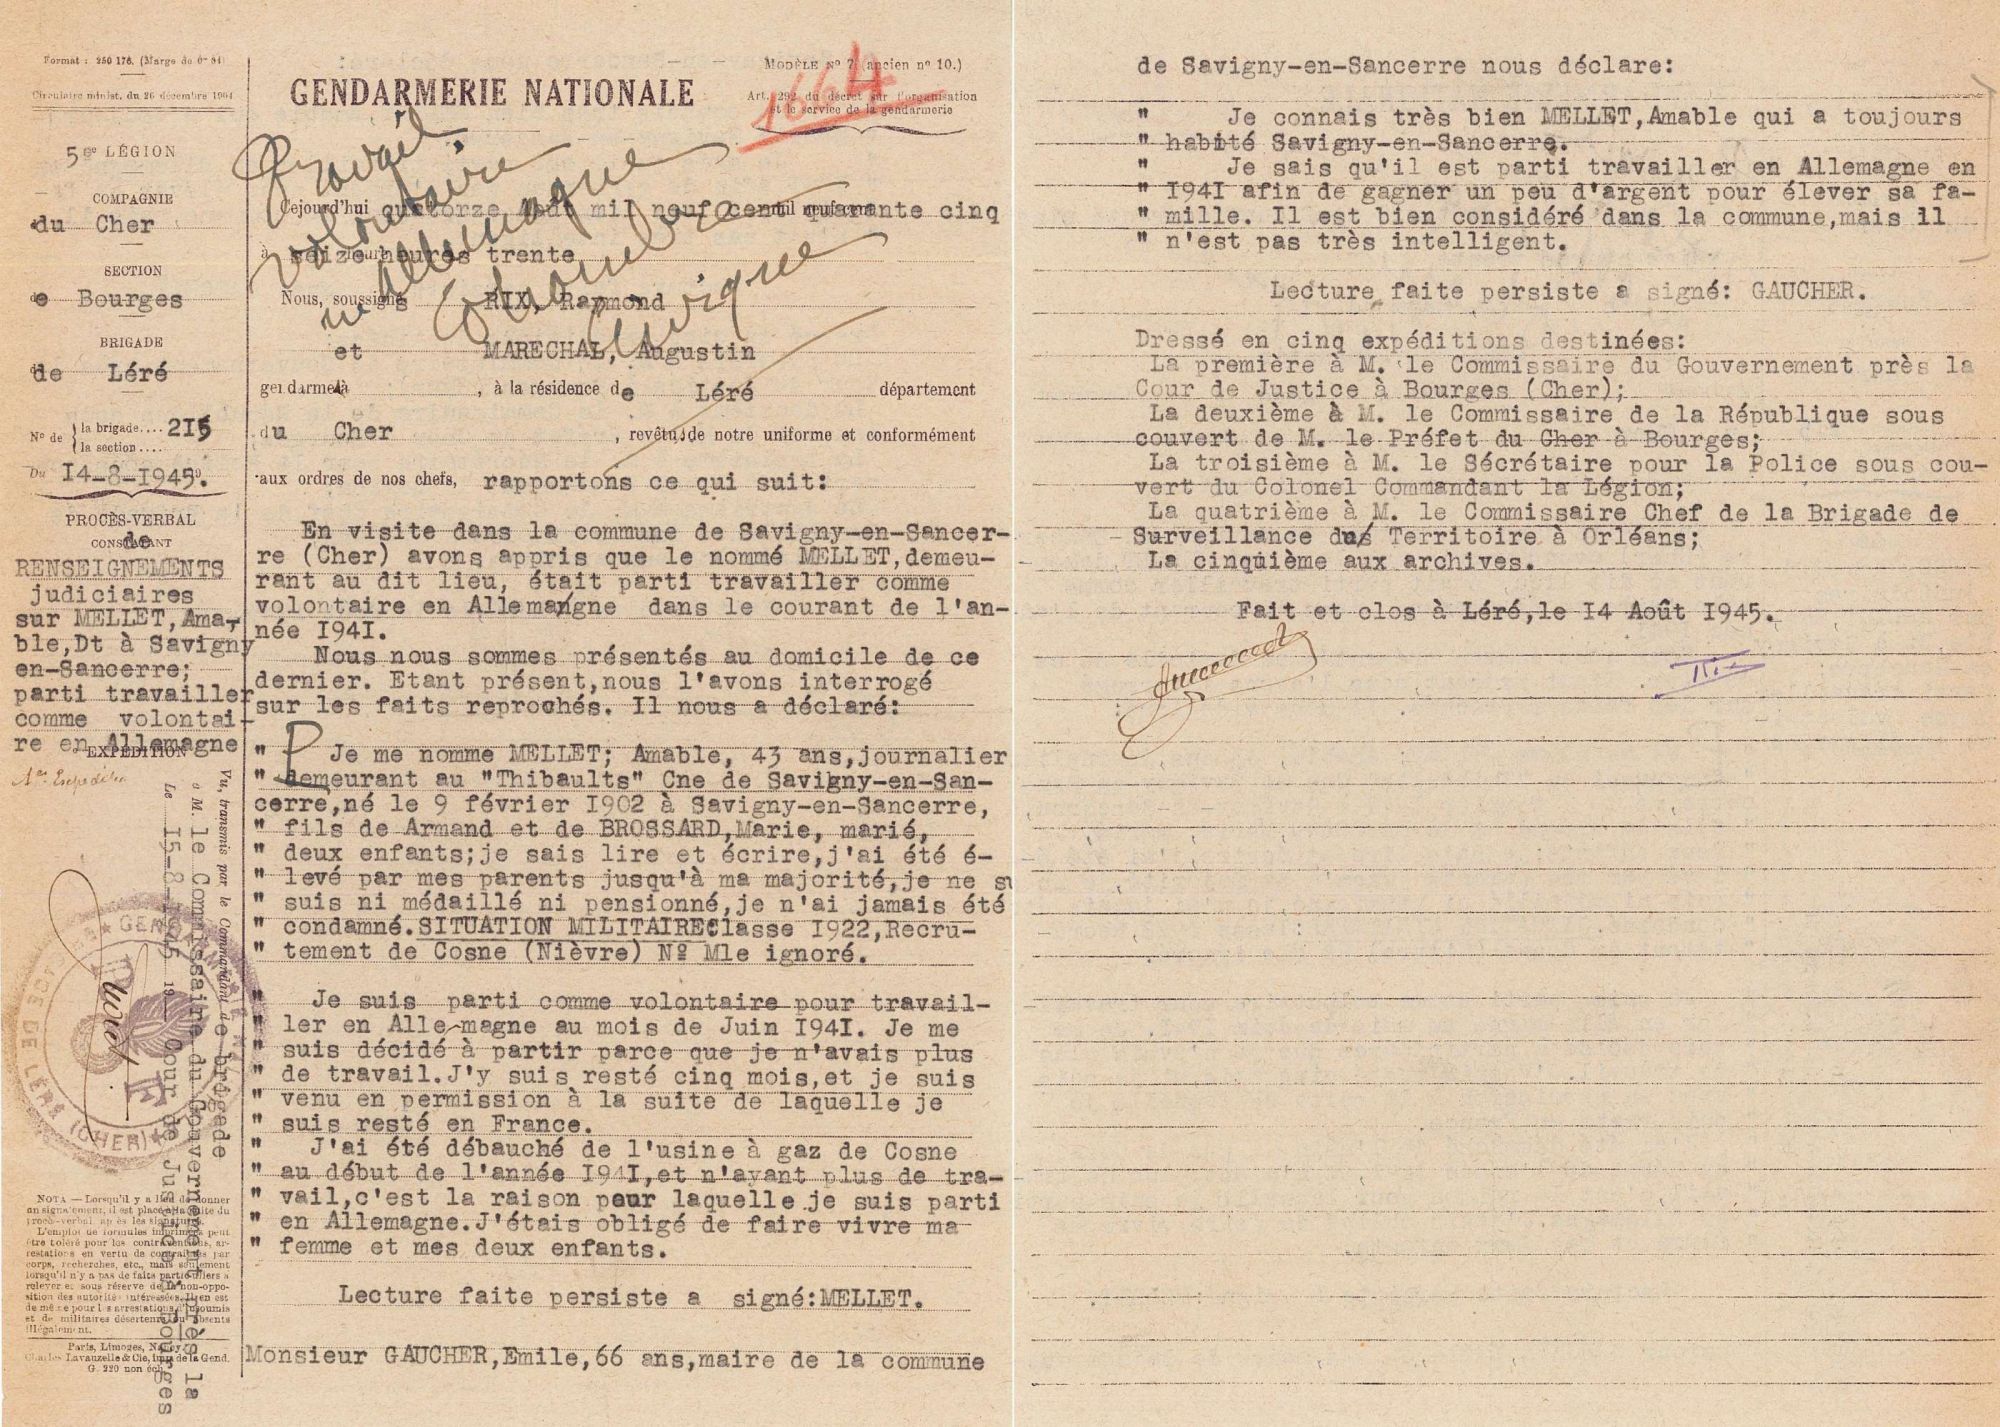 Format : 250 176. (Marge de 0m 04)
Circulaire minist. du 26 décembre 1904
5ee LÉGION
COMPAGNIE
du Cher
SECTION
de Bourges
BRIGADE
de Léré
No de { la brigade.... 215
la section....
Du 14-8-1945.
PROCÈS-VERBAL
CONSTATANT
de
RENSEIGNEMENTS
judiciaires
sur MELLET, Ama-
ble,Dt à Savigny
en-Sancerre;
parti travailler
comme volontai-
re en Allemagne
EXPÉDITION
Vu, transmis par le Commandant de brigade
à M. le Commissaire du Gouvernement près la
Cour de Justice à Bourges
Le 15-8-1945 19
GENDARMERIE NATIONALE
BRIGADE DE LÉRÉ
(CHER)
NOTA — Lorsqu'il y a lieu de donner
un signalement, il est placé à la suite du
procès-verbal après les signatures.
L'emploi de formules imprimées peut
être toléré pour les contraventions, ar-
restations en vertu de contraintes par
corps, recherches, etc., mais seulement
lorsqu'il n'y a pas de faits particuliers à
relever et sous réserve de la non-oppo-
sition des autorités intéressées. Il en est
de même pour les arrestations d'insoumis
et de militaires déserteurs ou absents
illégalement.
Paris, Limoges, Nancy.
Charles Lavauzelle & Cie, imp. de la Gend.
G. 220 non éch.
GENDARMERIE NATIONALE
MODÈLE No 7 (ancien no 10.)
Art. 292 du décret sur l'organisation
et le service de la gendarmerie
1664
Travail
volontaire
en Allemagne
Cejourd'hui quatorze août mil neuf cent quarante cinq
à seize heures trente
Nous, soussignés RIX, Raymond
et MARECHAL, Augustin
gendarmes à , à la résidence de Léré département
du Cher , revêtus de notre uniforme et conformément
aux ordres de nos chefs, rapportons ce qui suit:
En visite dans la commune de Savigny-en-Sancer-
re (Cher) avons appris que le nommé MELLET,demeu-
rant au dit lieu, était parti travailler comme
volontaire en Allemangne dans le courant de l'an-
née I94I.
Nous nous sommes présentés au domicile de ce
dernier. Etant présent,nous l'avons interrogé
sur les faits reprochés. Il nous a déclaré:
" Je me nomme MELLET; Amable, 43 ans,journalier
" demeurant au "Thibaults" Cne de Savigny-en-San-
cerre,né le 9 février I902 à Savigny-en-Sancerre,
" fils de Armand et de BROSSARD,Marie, marié,
" deux enfants;je sais lire et écrire,j'ai été é-
" levé par mes parents jusqu'à ma majorité,je ne su
" suis ni médaillé ni pensionné,je n'ai jamais été
" condamné.SITUATION MILITAIREClasse I922,Recru-
" tement de Cosne (Nièvre) Nº Mle ignoré.
" Je suis parti comme volontaire pour travail-
" ler en Alle-magne au mois de Juin I94I. Je me
" suis décidé à partir parce que je n'avais plus
" de travail.J'y suis resté cinq mois,et je suis
" venu en permission à la suite de laquelle je
" suis resté en France.
" J'ai été débauché de l'usine à gaz de Cosne
" au début de l'année I94I,et n'ayant plus de tra-
" vail,c'est la raison pour laquelle je suis parti
" en Allemagne.J'étais obligé de faire vivre ma
" femme et mes deux enfants.
Lecture faite persiste a signé:MELLET.
Monsieur GAUCHER,Emile,66 ans,maire de la commune
de Savigny-en-Sancerre nous déclare:
" Je connais très bien MELLET,Amable qui a toujours
" habité Savigny-en-Sancerre.
" Je sais qu'il est parti travailler en Allemagne en
" I94I afin de gagner un peu d'argent pour élever sa fa-
" mille. Il est bien considéré dans la commune,mais il
" n'est pas très intelligent.
Lecture faite persiste a signé: GAUCHER.
Dressé en cinq expéditions destinées:
La première à M. le Commissaire du Gouvernement près la
Cour de Justice à Bourges (Cher);
La deuxième à M. le Commissaire de la République sous
couvert de M. le Préfet du Cher à Bourges;
La troisième à M. le Sécrétaire pour la Police sous cou-
vert du Colonel Commandant la Légion;
La quatrième à M. le Commissaire Chef de la Brigade de
Surveillance du Territoire à Orléans;
La cinquième aux archives.
Fait et clos à Léré,le I4 Août I945.